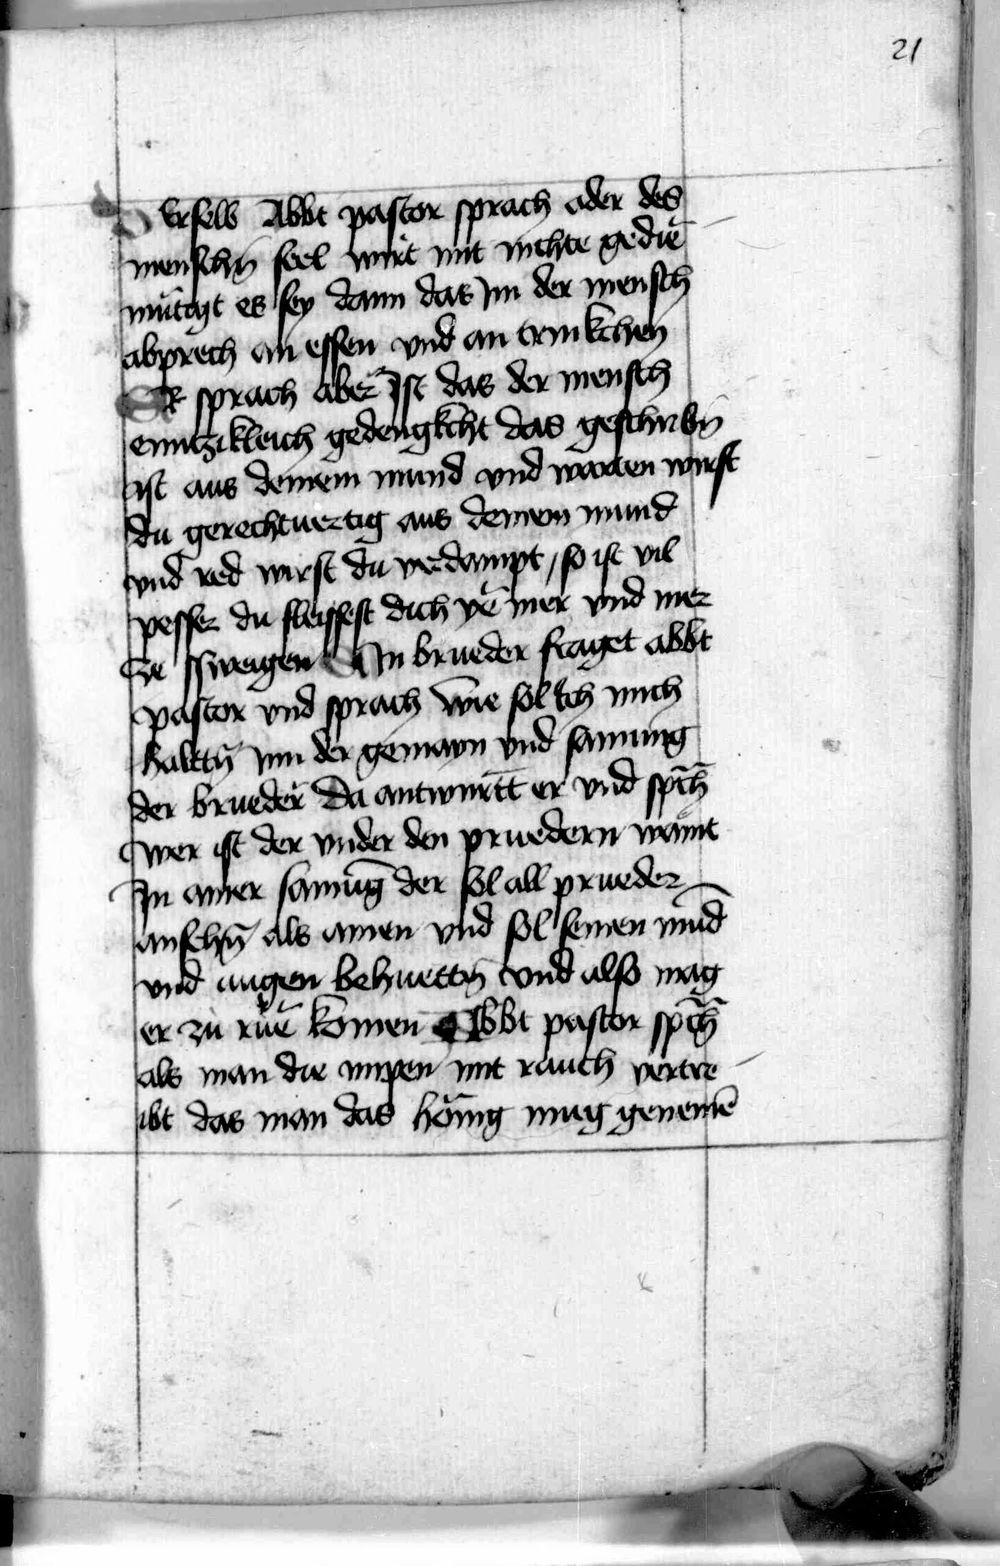 21
DErselb Abbt pastor sprach ader des
menschñ seel wirt mit nichte gediē
mütigt es sey dann das Im der mensch
abprech an essen vnd an trinkchen
ER sprach aber Ist das der mensch
emtzikleich gedengkcht das geschribñ
ist aus deinem mund vnd worten wirst
du gerechtuertig aus deinem mund
vnd red wirst du verdampt / so ist vil
pesser du fleissest dich ye mer vnd mer
ze sweigen Ain brueder fraget abbt
pastor vnd sprach wie sol ich mich
haltñ inn der gemayn vnd samung
der brueder Da antwurtt er vnd spch
wer ist der vnder den pruedern wannt
In ainer samūg der sol all prueder
ansehñ als ainen vnd sol seinen mūd
vnd augen behuettñ vnd also mag
er zu rüe komen Abbt pastor spch
als man die impen mit rauch vertre
ibt das man das hönig mug genemē